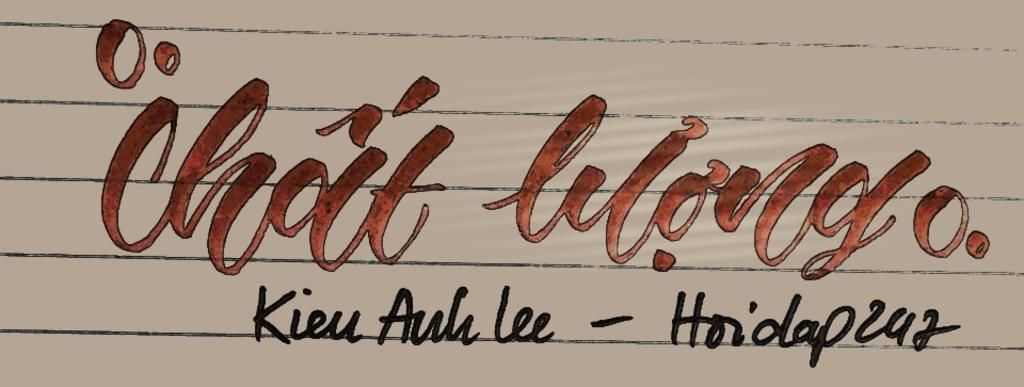 Chất lượng
Kieu Anh lee - Hoidap247